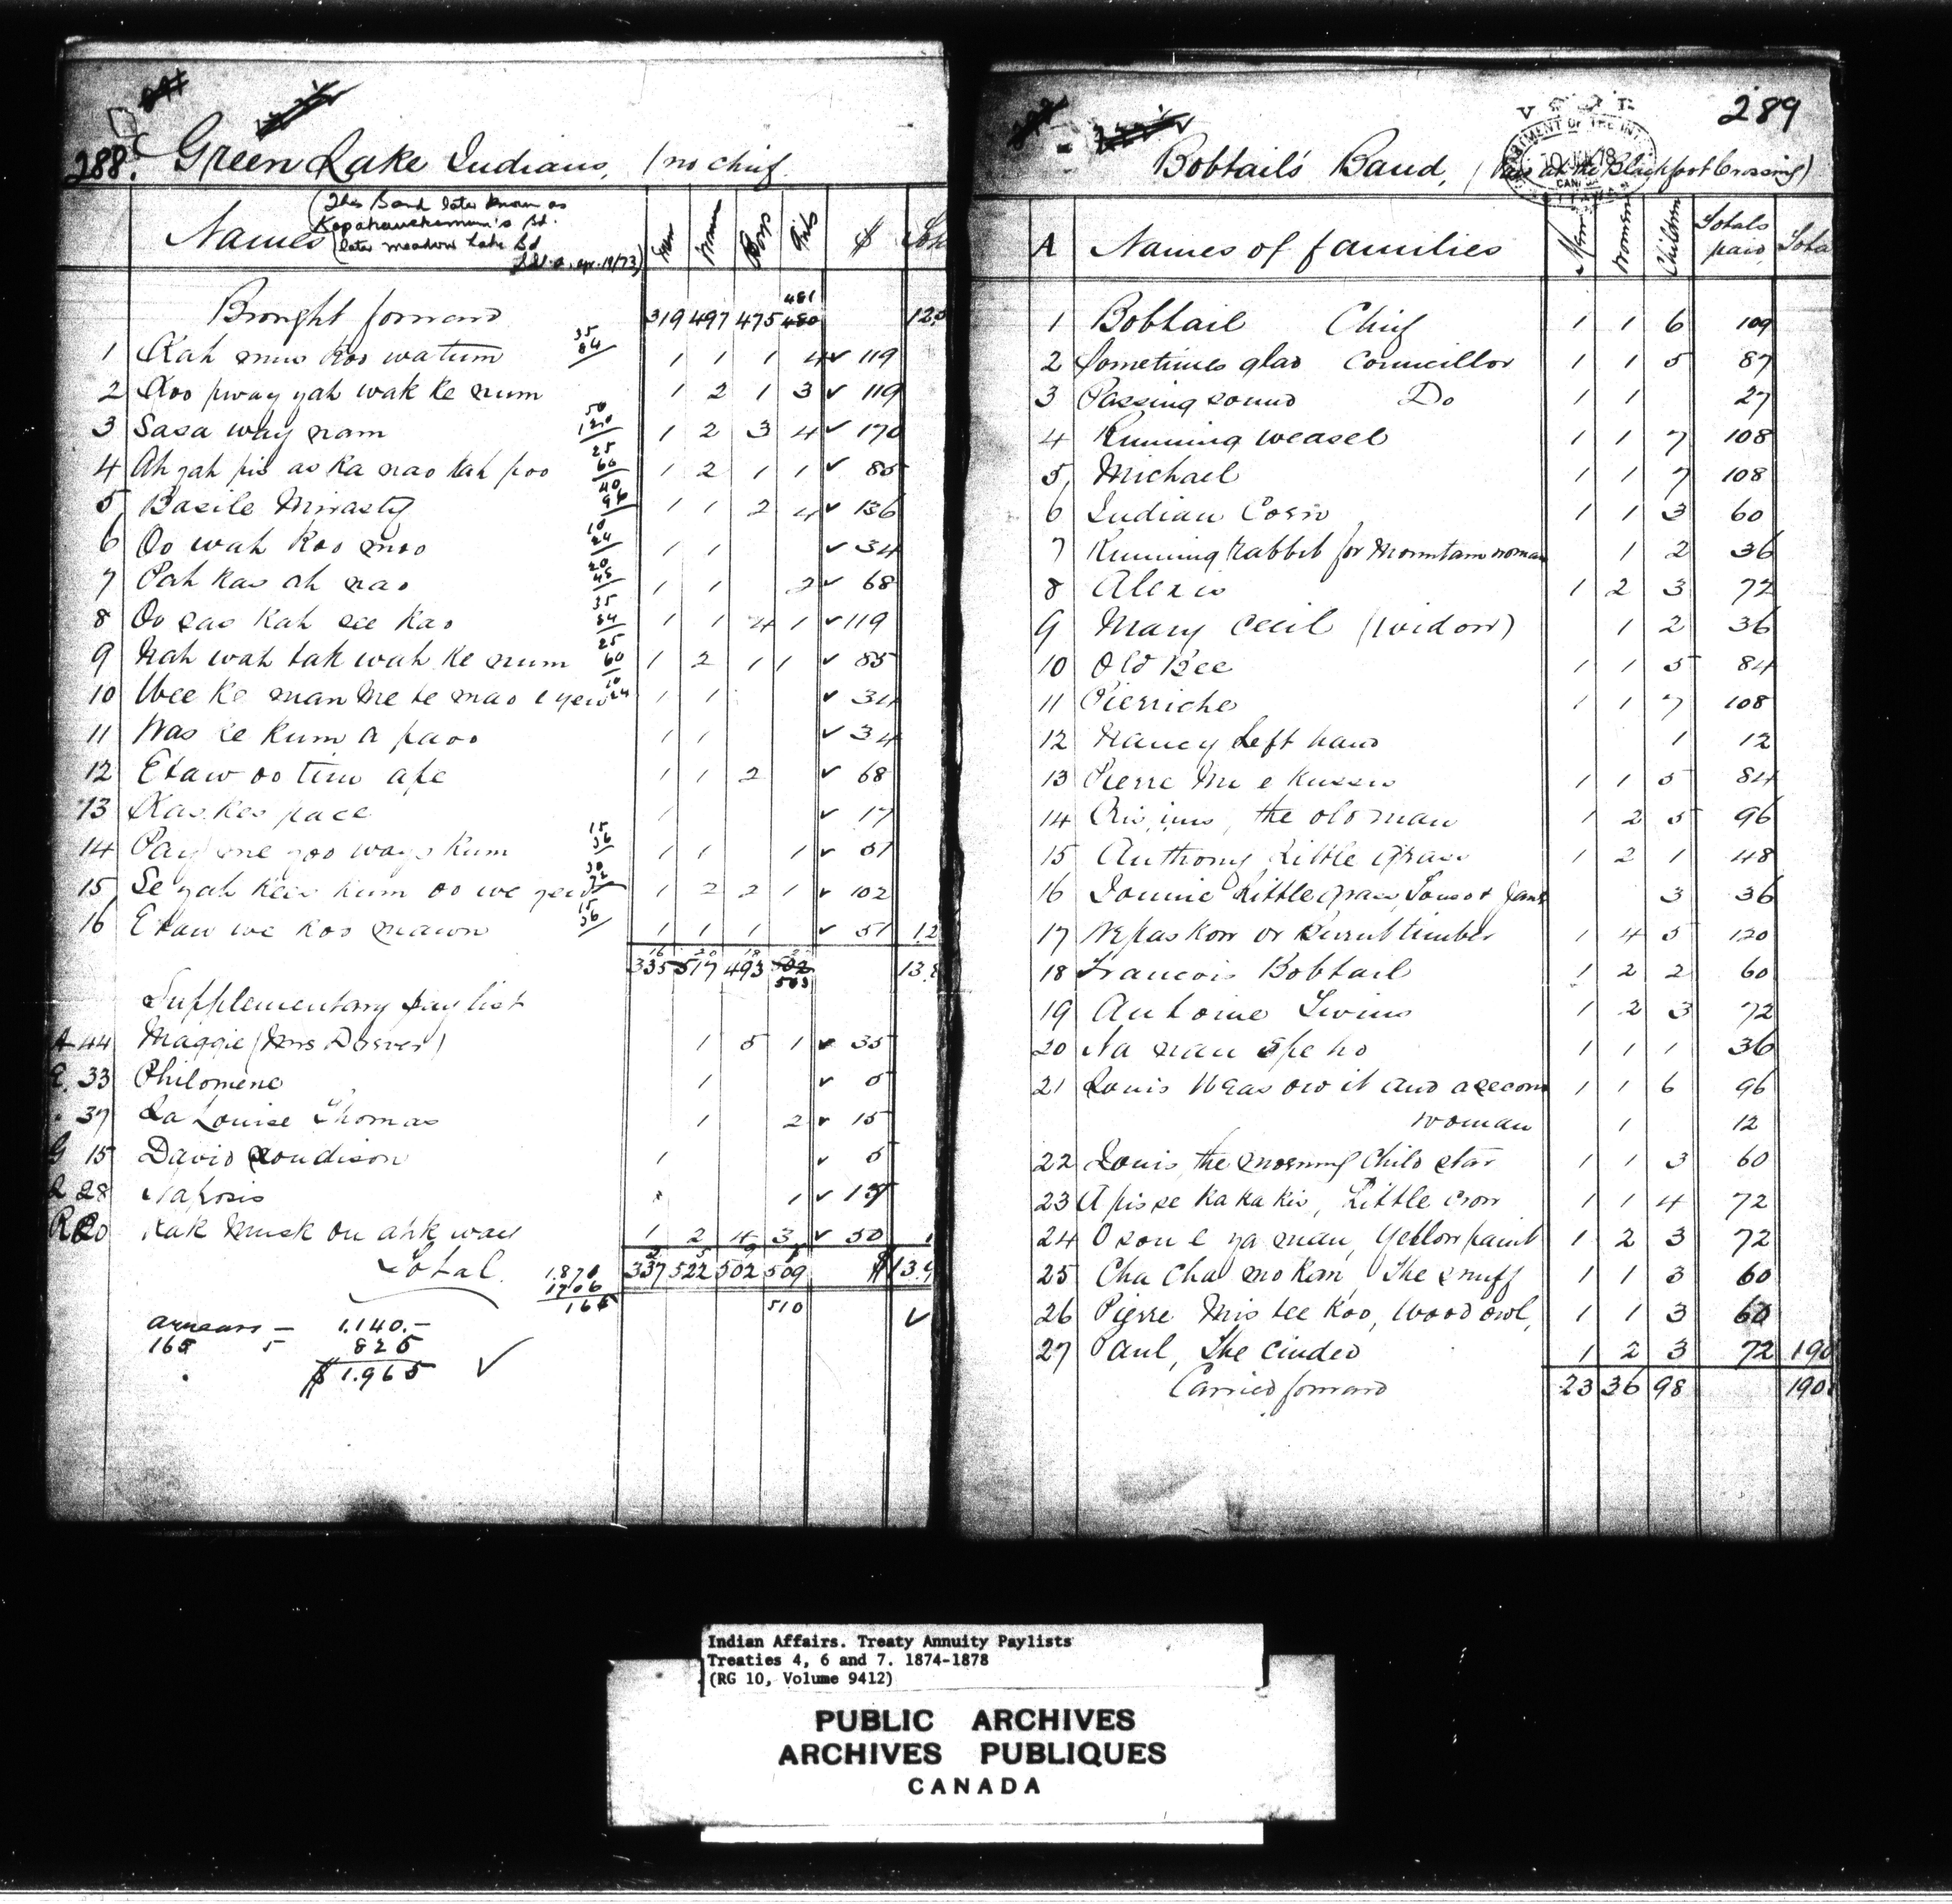 288. Green Lake Indians, (no chief
(This Band later known as
Kopahawekemum's Bd.
later Meadow Lake Bd
Apr. 19/73)
Names Men Women Boys Girls $
Brought forward 319 497 475 480 481
1 Kah mus koo watum 35 84 1 1 1 4 ✓ 119
2 Koo pway yah wak ke num 1 2 1 3 ✓ 119
3 Sasa way nam 50 120 1 2 3 4 ✓ 170
4 Ah yah pis as ka nao tah poo 25 60 1 2 1 1 ✓ 85
5 Basile Mirasty 40 96 1 1 2 4 ✓ 136
6 Oo wah koo moo 10 24 1 1 ✓ 34
7 Pah kas ah nao 20 48 1 1 2 ✓ 68
8 Oo sas kah see kao 35 84 1 1 4 1 ✓ 119
9 Nah wah tak wah ke num 25 60 1 2 1 1 ✓ 85
10 Wee ke man me te mao e yew 10 24 1 1 ✓ 34
11 Was ke kum a paoo 1 1 ✓ 34
12 Etaw oo tin ape 1 1 2 ✓ 68
13 Kas kes pace 1 ✓ 17
14 Pay me yoo ways kum 15 36 1 1 1 ✓ 51
15 Se yah kees kum oo we yew 30 72 1 2 2 1 ✓ 102
16 Etaw we kos mawn 15 36 1 1 1 ✓ 51
16 20 18
335 517 493 502 503
Supplementary pay list
A 44 Maggie (Mrs Dorver) 1 5 1 ✓ 35
E. 33 Philomene 1 ✓ 5
" 37 La Louise Thomas 1 2 ✓ 15
G 15 David Loudison 1 ✓ 5
28 Napesis 1 ✓
R 20 Kak musk ou ahk way 1 2 4 3 ✓ 50
2 5 9
Total 337 522 502 509
510
1.871
1706
165
arrears — 1.140.—
165 5 825
$1.965 ✓
289
Bobtail's Band, (Paid at the Blackfoot Crossing)
DEPARTMENT OF THE INTERIOR
CANADA
A Names of families Men Women Children Totals paid
1 Bobtail Chief 1 1 6 109
2 Sometimes glad Councillor 1 1 5 87
3 Passing sound Do 1 1 27
4 Running weasel 1 1 7 108
5 Michael 1 1 7 108
6 Indian Corn 1 1 3 60
7 Running rabbit for Mountain woman 1 2 36
8 Alexis 1 2 3 72
9 Mary Cecil (widow) 1 2 36
10 Old Bee 1 1 5 84
11 Pierriche 1 1 7 108
12 Nancy Left hand 1 12
13 Pierre Me e kussis 1 1 5 84
14 the old man 1 2 5 96
15 Anthony Little grass 1 2 1 48
16 Little grass 3 36
17 Nepaskow or Burnt timber 1 4 5 120
18 Francois Bobtail 1 2 2 60
19 Antoine Swins 1 2 3 72
20 Na nau spe ho 1 1 1 36
21 Louis Weas ow it and a second 1 1 6 96
woman 1 12
22 Louis the morning Child star 1 1 3 60
23 Apisse ka ka kis, Little crow 1 1 4 72
24 O son e ya man, Yellow paint 1 2 3 72
25 Cha cha mo kan, The snuff 1 1 3 60
26 Pierre Mis tee koo, Wood owl, 1 1 3 60
27 Paul, The cinded 1 2 3 72 190
Carried forward 23 36 98 190
Indian Affairs. Treaty Annuity Paylists
Treaties 4, 6 and 7. 1874-1878
(RG 10, Volume 9412)
PUBLIC ARCHIVES
ARCHIVES PUBLIQUES
CANADA